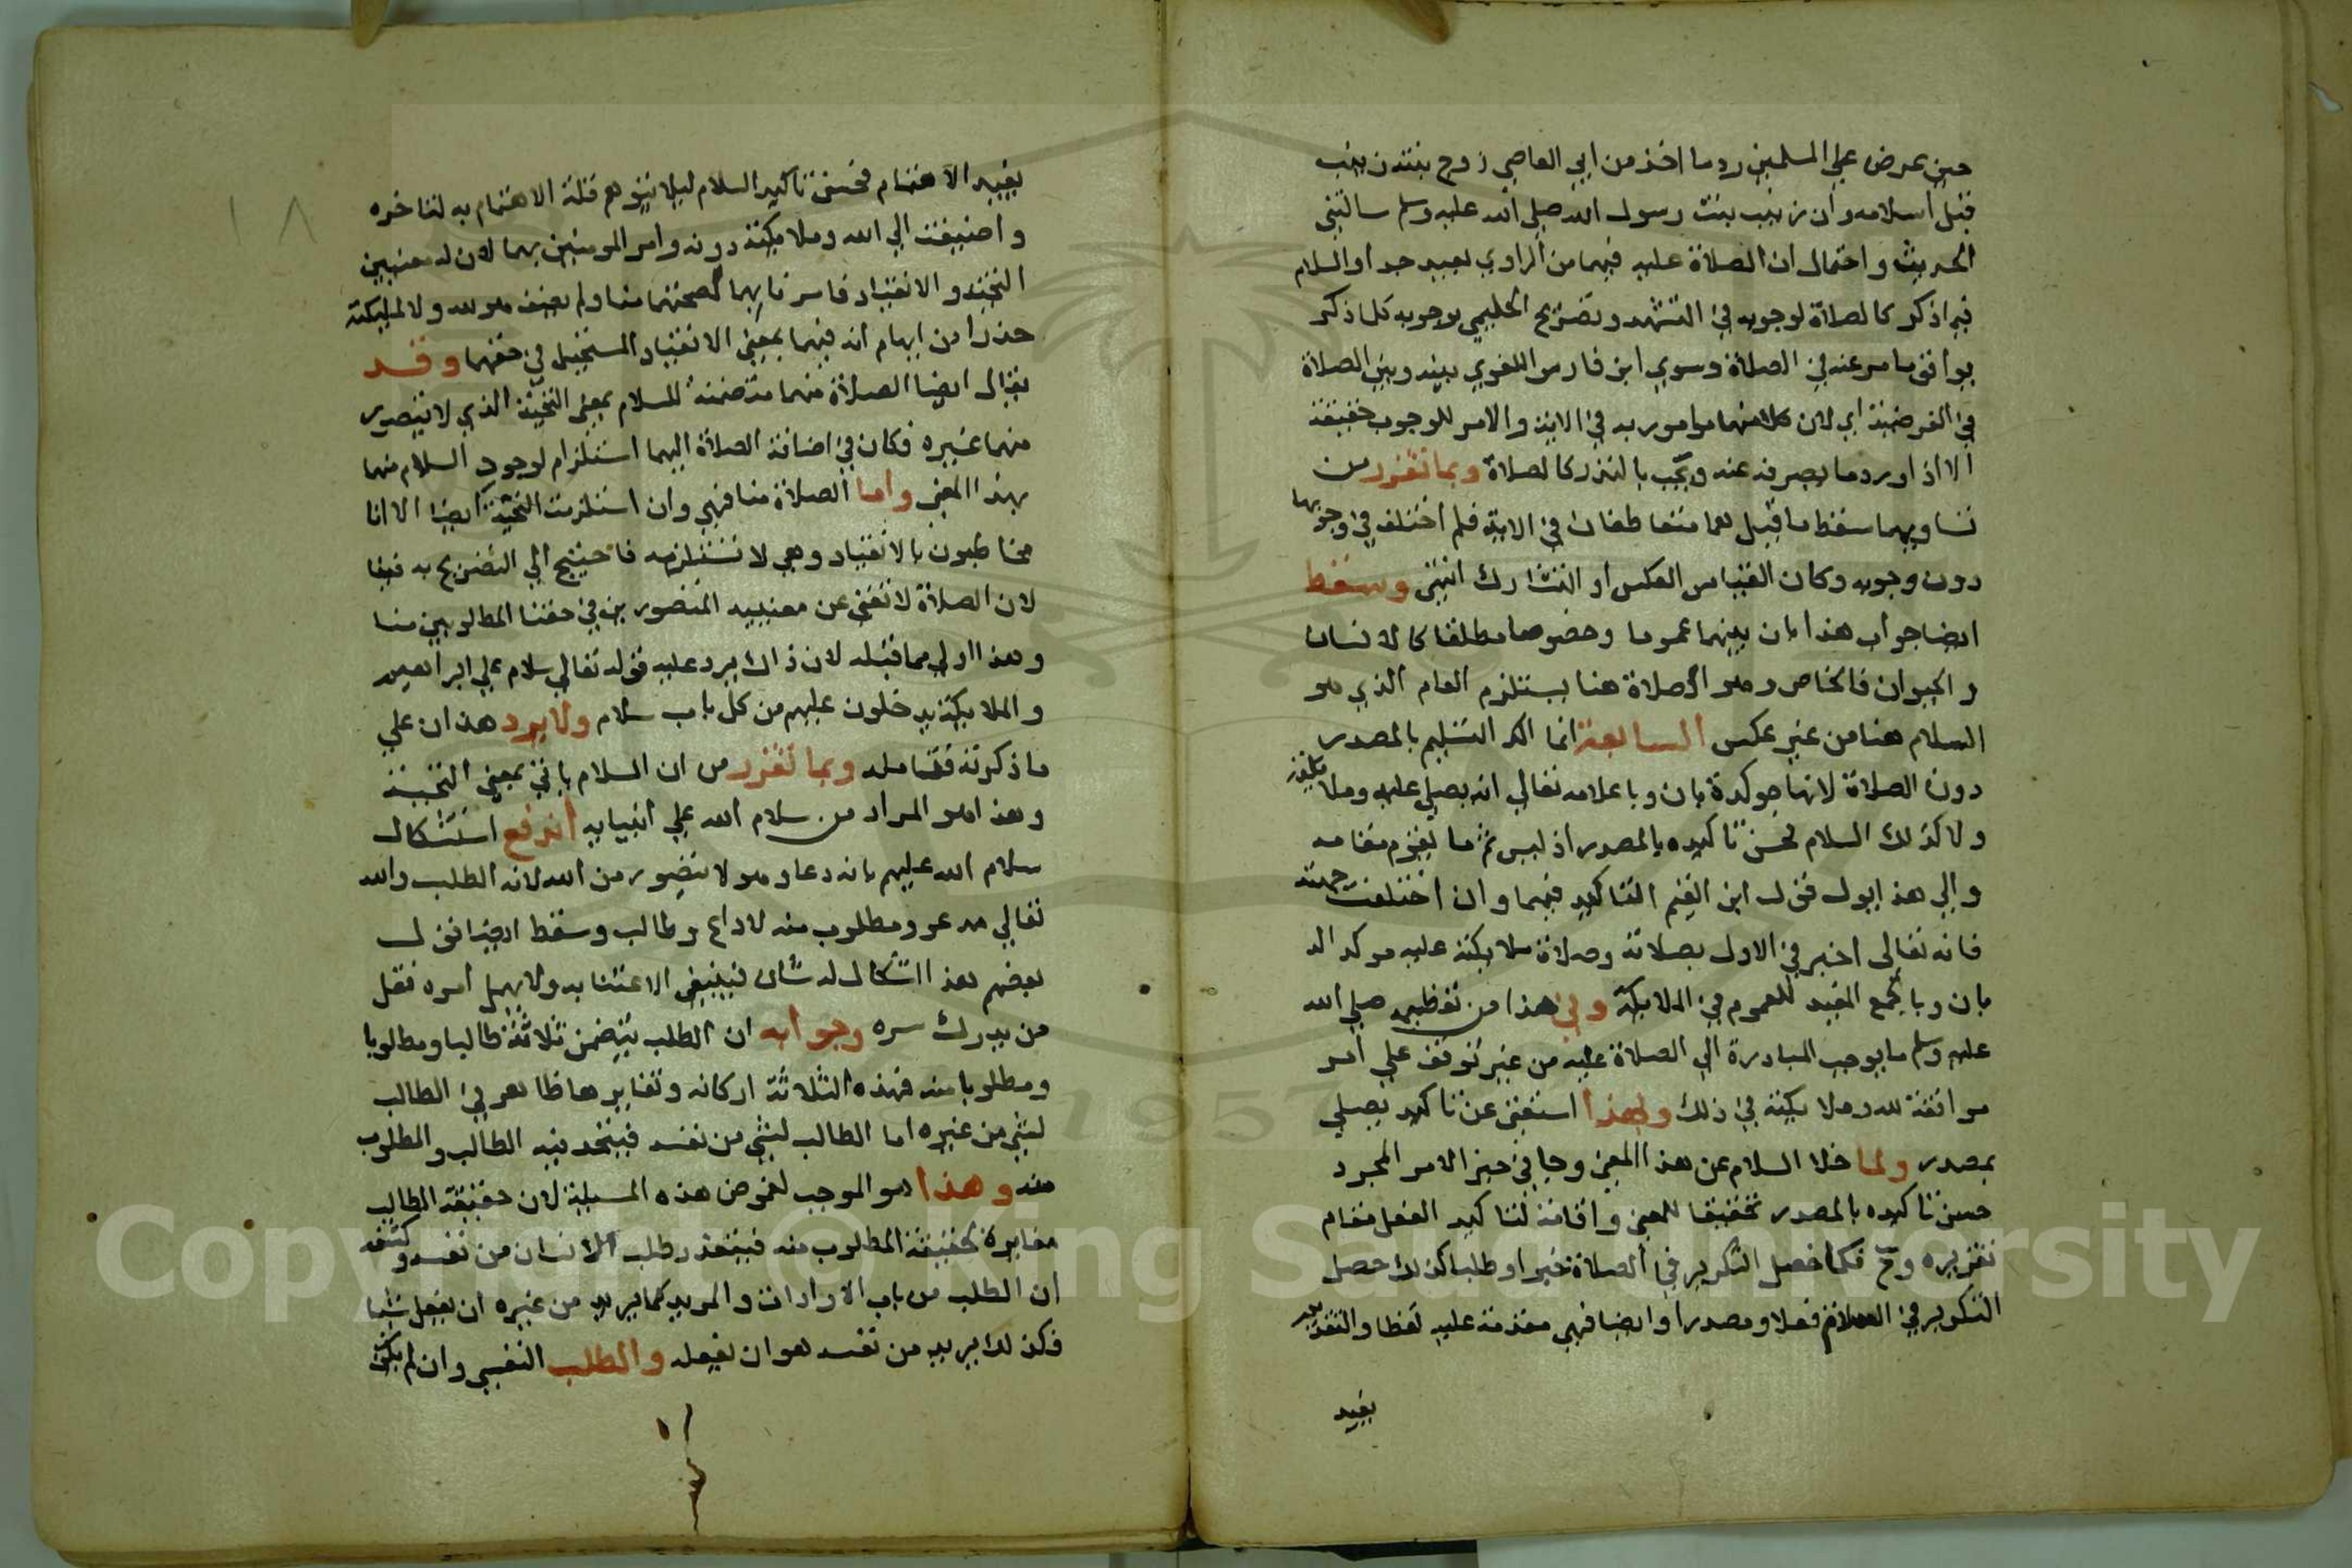 حين عرض علي المسلمين رد ما اخذ من ابي العاصي زوج بنته زينب
قبل اسلامه وان زينب بنت رسول الله صلي الله عليه وسلم سالتني
الحديث واحتمال ان الصلاة عليه فيهما من الراوي بعيد جدا والسلام
فيما ذكر كالصلاة لوجوبه في التشهد وتصريح الحليمي بوجوبه كلما ذكر
يوافق ما مر عنه في الصلاة وسوي ابن فارس اللغوي بينه وبين الصلاة
في الفرضية اي لان كلا منهما مامور به في الاية والامر للوجوب حقيقة
الا اذا ورد ما يصرفه عنه ويجب بالنذر كالصلاة وبما تقرر من
تساويهما سقط ما قيل هما متعاطفان في الاية فلم اختلف في وجوبها
دون وجوبه وكان القياس العكس او التشارك انتهي وسقط
ايضا جواب هذا بان بينهما عموما وخصوصا مطلقا كالانسان
والحيوان فالخاص وهو الصلاة هنا يستلزم العام الذي هو
السلام هنا من غير عكس السابعة انما اكد التسليم بالمصدر
دون الصلاة لانها موكدة بان وباعلامه تعالي انه يصلي عليه وملايكته
ولا كذلك السلام فحسن تاكيده بالمصدر اذ ليس ثم ما يقوم مقامه
والي هذا يول قول ابن القيم التاكيد فيهما وان اختلفت جهته
فانه تعالي اخبر في الاول بصلاته وصلاة ملايكته عليه موكدا له
بان وبالجمع المفيد للعموم في الملايكة وفي هذا من تعظيمه صلي الله
عليه وسلم ما يوجب المبادرة الي الصلاة عليه من غير توقف علي امر
موافقة لله وملايكته في ذلك ولهذا استغني عن تاكيد يصلي
بمصدر ولما خلا السلام عن هذا المعني وجا في حيز الامر المجرد
حسن تاكيده بالمصدر تحقيقا للمعني واقامة لتاكيد الفعل مقام
تقريره وح فكما حصل التكرير في الصلاة خبرا وطلبا كذلك حصل
التكرير في السلام فعلا ومصدرا وايضا فهي مقدمة عليه لفظا والتقديم
يفيد
١٨
يفيد الاهتمام فحسن تاكيد السلام ليلا يتوهم قلة الاهتمام به لتاخره
واضيفت الي الله وملايكته دونه وامر المومنين بهما لان له معنيين
التحية والانقياد فامرنا بهما لصحتهما منا ولم يضف هو لله ولا لملايكته
حذرا من ايهام انه فيهما بمعني الانقياد المستحيل في حقهما وقد
يقال ايضا الصلاة منهما متضمنة للسلام بمعني التحية الذي لا يتصور
منهما غيره فكان في اضافة الصلاة اليهما استلزام لوجود السلام منهما
بهذا المعني واما الصلاة منا فهي وان استلزمت التحية ايضا الا انا
مخاطبون بالانقياد وهي لا تستلزمه فاحتيج الي التصريح به فينا
لان الصلاة لا تغني عن معنييه المتصورين في حقنا المطلوبين منا
وهذا اولي مما قبله لان ذاك يرد عليه قوله تعالي سلام علي ابراهيم
والملايكة يدخلون عليهم من كل باب سلام ولا يرد هذان علي
ما ذكرته فتامله وبما تقرر من ان السلام ياتي بمعني التحية
وهذا هو المراد من سلام الله علي انبيايه اندفع استشكال
سلام الله عليهم بانه دعا وهو لا يتصور من الله لانه الطلب والله
تعالي مدعو ومطلوب منه لا داع وطالب وسقط ايضا قول
بعضهم هذا اشكال له شان فينبغي الاعتنا به ولا يهمل امره فقل
من يدرك سره وجوابه ان الطلب يتضمن ثلاثة طالبا ومطلوبا
ومطلوبا منه فهذه الثلاثة اركانه وتغايرها ظاهر في الطالب
لشي من غيره اما الطالب لشي من نفسه فيتحد فيه الطالب والمطلوب
منه وهذا هو الموجب لغموض هذه المسيلة لان حقيقة الطالب
مغايرة لحقيقة المطلوب منه فيتعذر طلب الانسان من نفسه وكشفه
ان الطلب من باب الارادات والمريد كما يريد من غيره ان يفعل شيا
فكذلك يريد من نفسه هو ان يفعله والطلب النفسي وان لم يكن
Copyright © King Saud University
1957